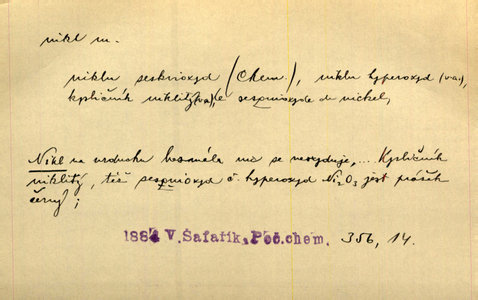 nikl m.
niklu seskvioxyd (Chem.), niklu hyperoxyd (v. a.),
kysličník niklitý (v. a.), le sesquioxyde de nickel,
Nikl na vzduchu bezmála nic se neoxyduje, ... Kysličník
niklitý, též sesquioxyd č. hyperoxyd Ni2O3 jest prášek
černý;
1884 V. Šafařík, Poč. chem. 356, 14.